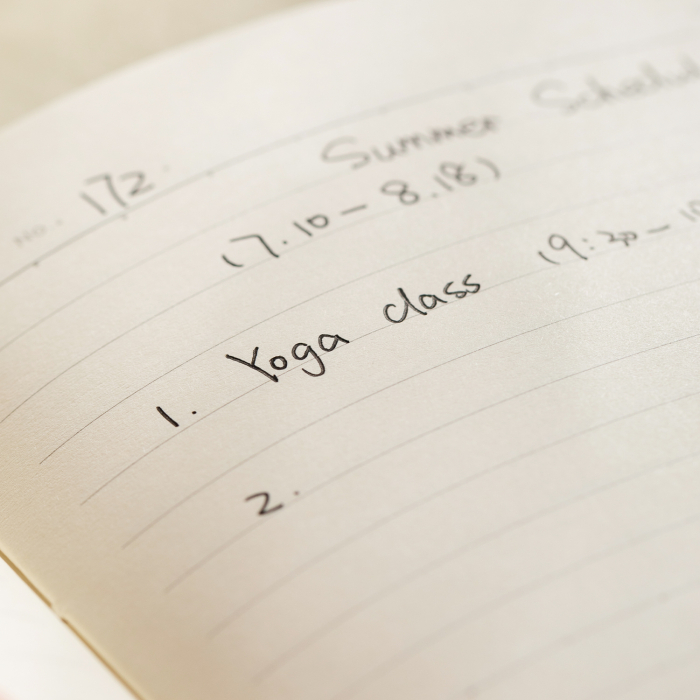 No. 172
Summer Schedul
(7.10 - 8.18)
1. Yoga class (9:30 - 1
2.